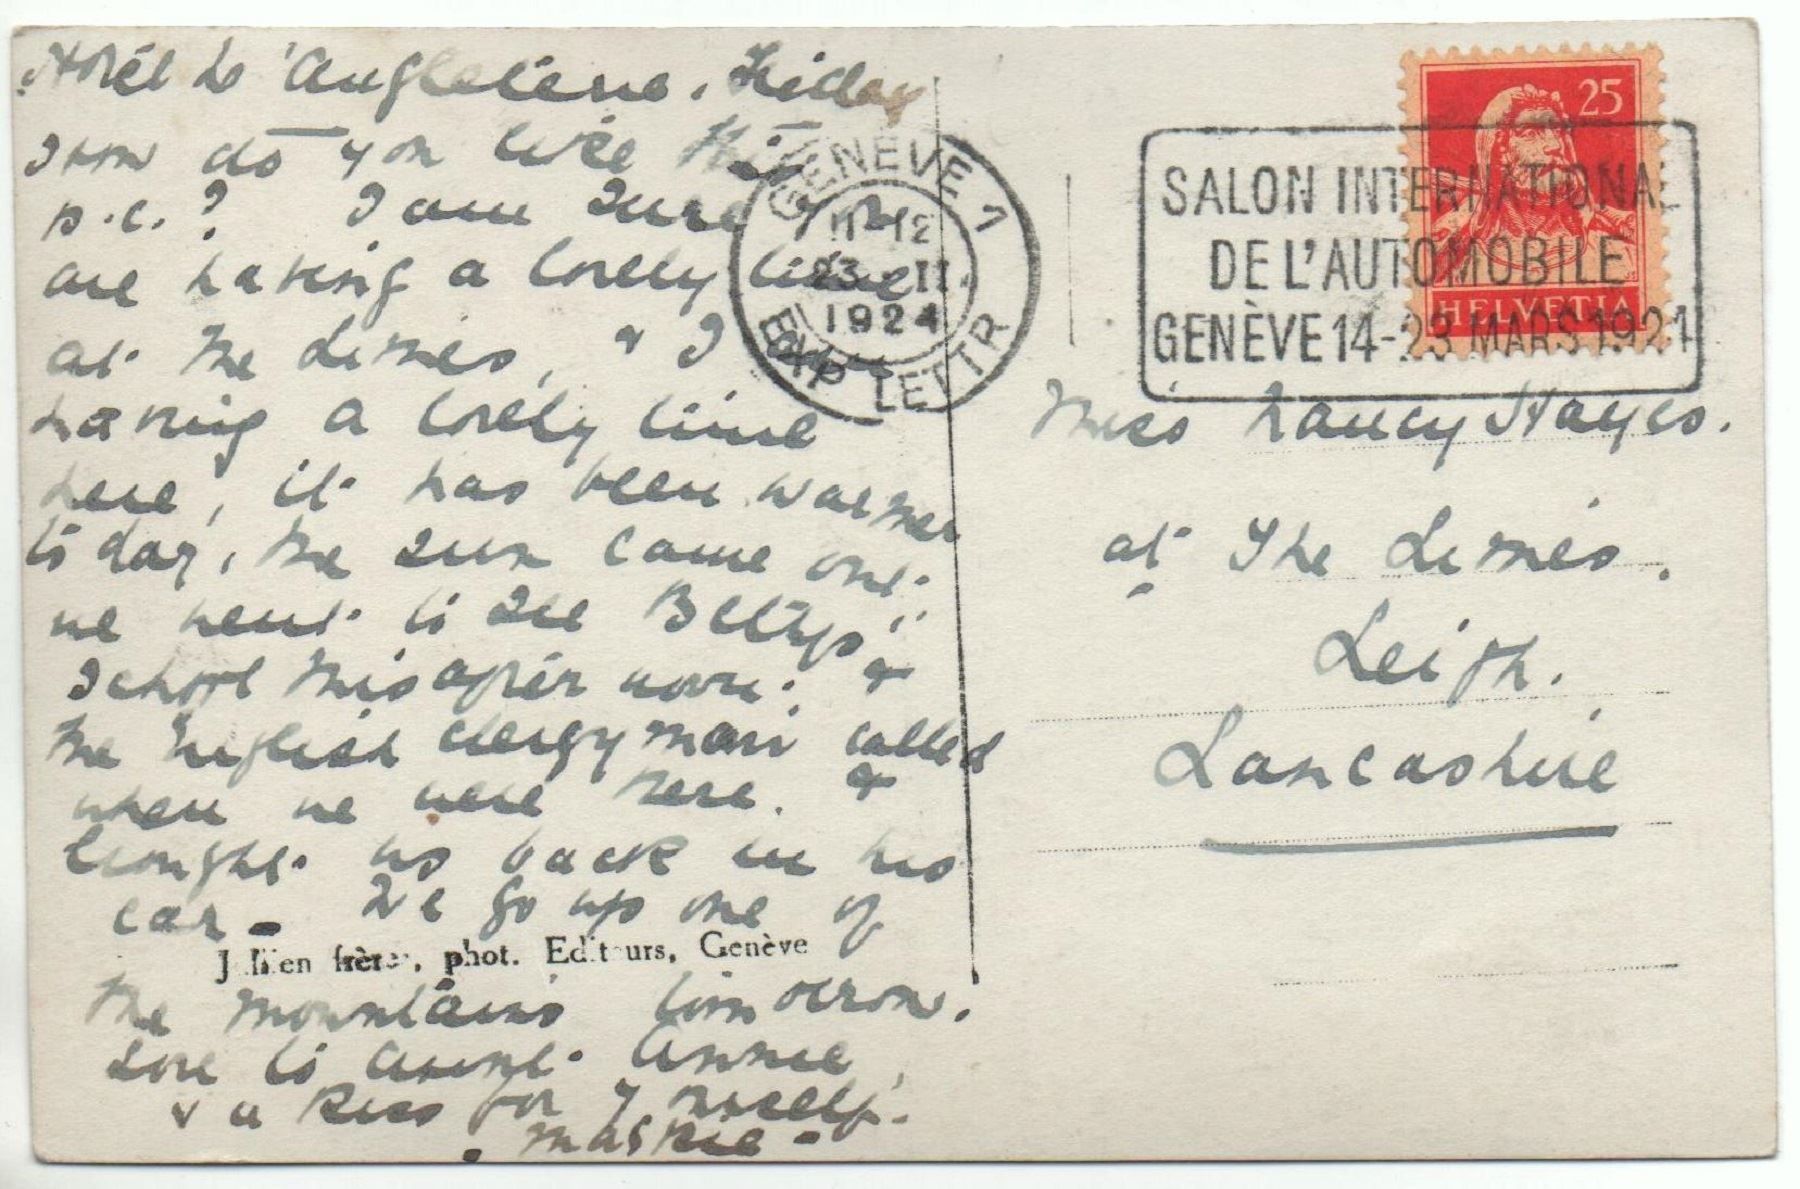 Hotel de Angleterre. Friday
How do you like this
p.c.? I am sure you
are having a lovely time
at The Limes, & I am
having a lovely time
here, it has been warmer
to day, the sun came out.
we went to see Bettys
School this afternoon. &
the English clergyman called
when we were there. &
brought us back in his
car - We go up one of
the mountains tomorrow.
Love to Aunt Annie,
& a kiss for yourself.
GENÈVE 1
11-12
23. II.
1924
EXP. LETTR.
SALON INTERNATIONAL
DE L'AUTOMOBILE
GENÈVE 14-23 MARS 1924
25
HELVETIA
Miss Nancy Hayes.
at The Limes.
Leigh.
Lancashire
Jullien frères, phot. Editeurs, Genève